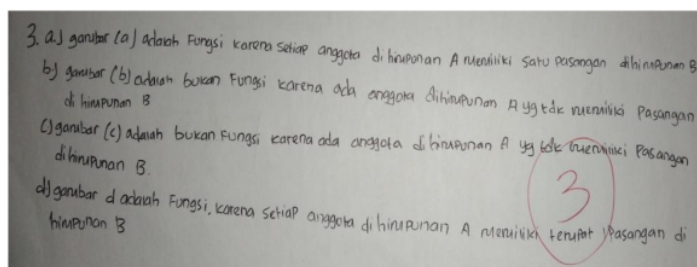 3. a.) gambar (a) adalah Fungsi karena setiap anggota di himpunan A memiliki satu pasangan dihimpunan B
b) gambar (b) adalah bukan Fungsi karena ada anggota dihimpunan A yg tdk memiliki Pasangan
di himpunan B
c) gambar (c) adalah bukan Fungsi karena ada anggota di himpunan A yg tdk memiliki Pasangan
di himpunan B.
d) gambar d adalah Fungsi, karena setiap anggota di himpunan A memiliki Pasangan di
himpunan B
3